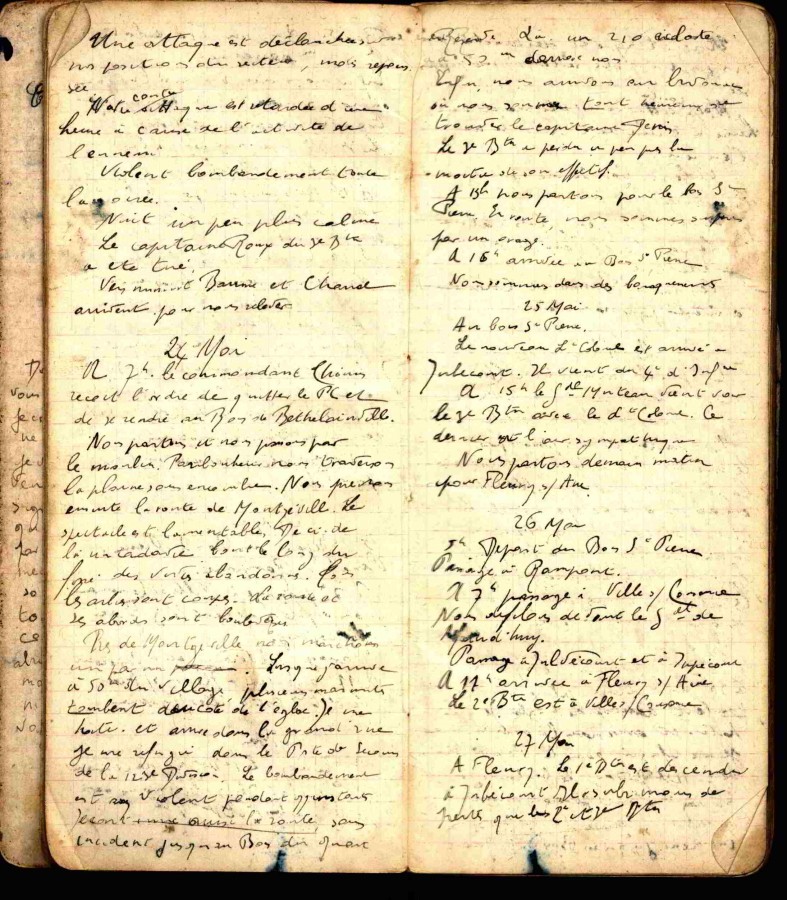 Une attaque est déclanchée
nos positions du secteur, mais repous
sée
Notre contre attaque est retardée d'une
heure à cause de l'
l'ennemi
Violent bombardement toute
la soirée.
Nuit un peu plus calme
Le capitaine Roux du 3e Btn
a été tué.
Vers minuit Baume et Chaud
arrivent pour nous relever
24 Mai
A 7h. le commandant
recoit l'ordre de quitter le PC et
de se rendre au Bois de Béthelainville.
Nous partons et nous passons par
le moulin. nous traversons
la plaine sans encombre. Nous prenons
ensuite la route de Montzéville. Le
spectacle est lamentable. De ci de
là un cadavre tout le long du
des abandonnés.
les arbres sont coupés. La route et
ses abords sont bouleversés
Près de Montzéville nous marchons
un par un. Lorsque j'arrive
à 50m du village plusieurs marmites
tombent du côté de l'église. Je me
hate. et arrive dans la grand'rue
je me réfugie dans le Pste de Secours
de la Division. Le bombardement
est violent pendant
la route, sans
incident jusqu'au Bois du
Là. un 210 éclate
à 50m derrière nous
Enfin, nous arrivons au
où nous sommes tout heureux de
trouver le capitaine
Le 3e Btn a perdu à peu près la
moitié de son effectif.
A 15h nous partons pour le Bois St
Pierre. En route, nous sommes surpris
par un orage.
A 16h arrivée au Bois St Pierre
Nous sommes dans des baraquements
25 Mai
Au bois St Pierre.
Le nouveau Lt Colonel est arrivé à
Jubécourt. Il vient du 4e d'Infie
A 15h le Gral vient voir
le 3e Btn avec le Lt Colonel. Ce
dernier a l'air sympathique
Nous partons demain matin
pour Fleury s/ Aire.
26 Mai
5h Départ du Bois St Pierre
Passage à Rampont.
A 7h passage à Ville s/ Cousance
Nous défilons devant le Gral de
Passage à Julvécourt et à Ippécourt
A 11h arrivée à Fleury s/ Aire
Le 2e Btn est à Ville s/ Cousance
27 Mai
A Fleury. Le 1er Btn est descendu
à Jubécourt. Il a subi moins de
pertes que les 2e et 3e Btns